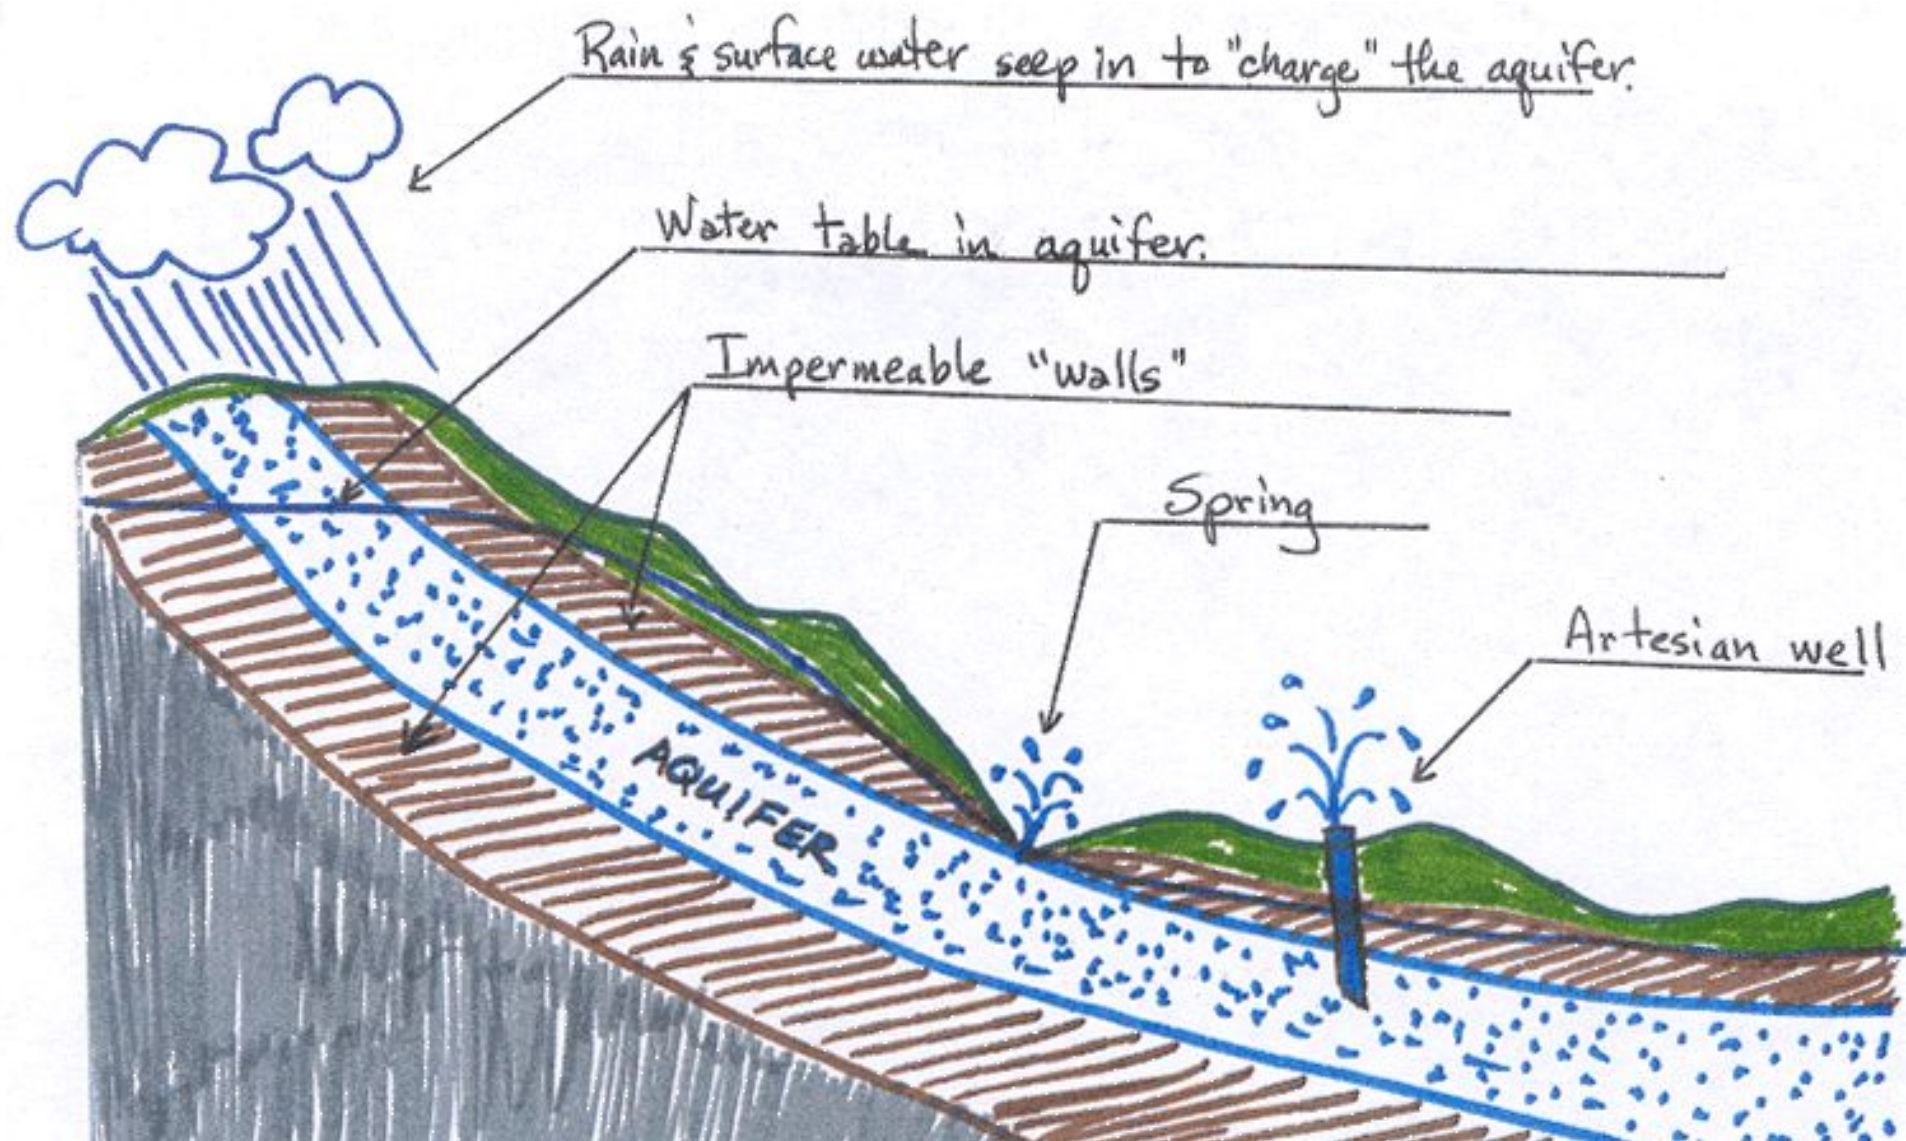 Rain & surface water seep in to "charge" the aquifer.
Water table in aquifer.
Impermeable "walls"
Spring
Artesian well
AQUIFER